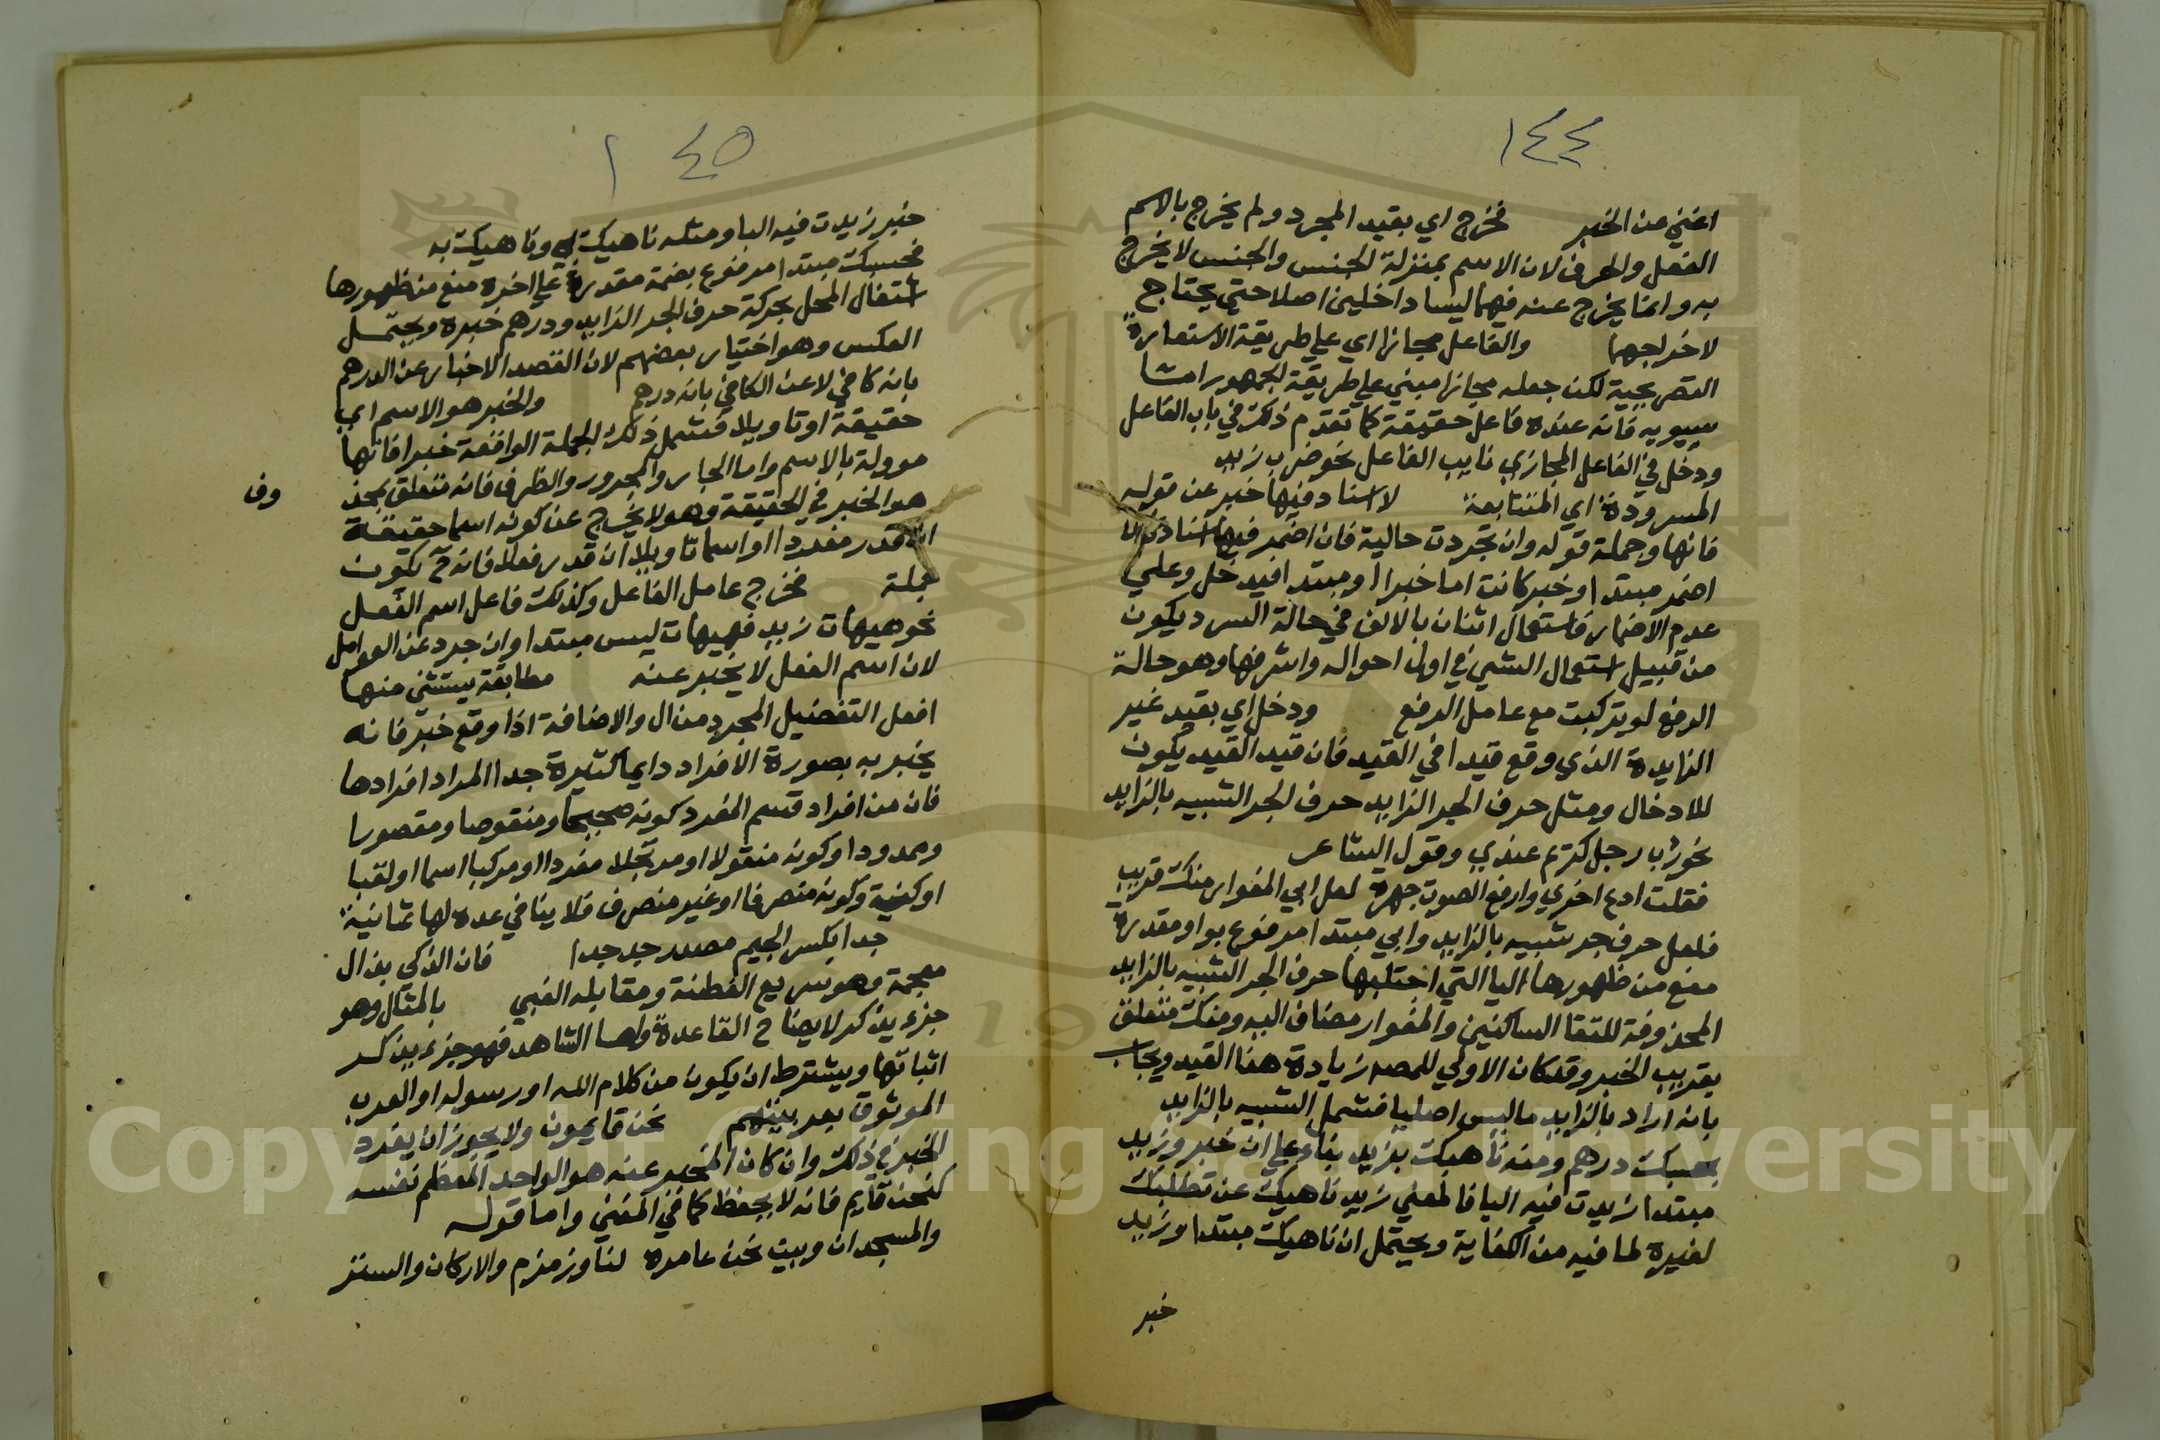 ١٤٤
اغني عن الخبر فخرج اي بقيد المجرد ولم يخرج بالاسم
الفعل والحرف لان الاسم بمنزلة الجنس والجنس لا يخرج
به وانما يخرج عنه فيهما ليسا داخلين اصلا حتى يحتاج
لاخراجهما والفاعل مجازا اي علي طريقة الاستعارة
التصريحية لكن جعله مجازا مبني علي طريقة الجمهور امشا
سيبويه فانه عنده فاعل حقيقة كما تقدم ذلك في باب الفاعل
ودخل في الفاعل المجازي نايب الفاعل نحو ضرب زيد
المسرودة اي المتتابعة لا اسناد فيها خبر عن قوله
فانها وجملة قوله وان تجردت حالية فان اضمر فيها اسناد
اضمر مبتدا وخبر كانت اما خبرا او مبتدا فيدخل وعلي
عدم الاضمار فاستعمال اثنان بالالف في حالة السرد يكون
من قبيل استعمال الشي في اولى احواله واشرفها وهو حالة
الرفع لو تركبت مع عامل الرفع ودخل اي بقيد غير
الزايدة الذي وقع قيدا في القيد فان قيد القيد يكون
للادخال ومثل حرف الجر الزايد حرف الجر الشبيه بالزايد
نحو رب رجل كريم عندي وقول الشاعر
فقلت ادع اخري وارفع الصوت جهرة لعل ابي المغوار منك قريب
فلعل حرف جر شبيه بالزايد وابي مبتدا مرفوع بواو مقدرة
منع من ظهورها اليا التي اجتلبها حرف الجر الشبيه بالزايد
المحذوفة للتقا الساكنين والمغوار مضاف اليه ومنك متعلق
بقريب الخبر وقد كان الاولي للمصـ زيادة هذا القيد ويجاب
بانه اراد بالزايد ما ليس اصليا فشمل الشبيه بالزايد
بحسبك درهم ومنه ناهيك بزيد بناء علي ان خبر وزيد
مبتدا زيدت فيه البا فالمعني زيد ناهيك عن تطلبك
لغيره لما فيه من الكفاية ويحتمل ان ناهيك مبتدا وزيد
خبر
١٤٥
خبر زيدت فيه البا ومثله ناهيك به وناهيك به
فحسبك مبتدا مرفوع بضمة مقدرة علي اخره منع من ظهورها
اشتغال المحل بحركة حرف الجر الزايد ودرهم خبره ويحتمل
العكس وهو اختيار بعضهم لان القصد الاخبار عن الدرهم
بانه كافي لا عن الكافي بانه درهم والخبر هو الاسم اي
حقيقة او تاويلا فتشمل ذلك الجملة الواقعة خبرا فانها
موولة بالاسم واما الجار والمجرور والظرف فانه متعلق بمحذ
وف
هو الخبر في الحقيقة وهو لا يخرج عن كونه اسما حقيقة
ان قدر مفردا او اسما تاويلا ان قدر فعلا فانه ح يكون
جملة فخرج عامل الفاعل وكذلك فاعل اسم الفعل
نحو هيهات زيد فهيهات ليس مبتدا وان جرد عن العوامل
لان اسم الفعل لا يخبر عنه مطابقة يستثني منها
افعل التفضيل المجرد من ال والاضافة اذا وقع خبر فانه
يخبر به بصورة الافراد دايما كثيرة جدا المراد افرادها
فان من افراد قسم المفرد كونه صحيحا ومنقوصا ومقصورا
وممدودا وكونه منقولا او مرتجلا مفردا او مركبا اسما او لقبا
او كنية وكونه منصرفا او غير منصرف فلا ينافي عده لها ثمانية
جدا بكسر الجيم مصدر جد جدا فان الذكي بذال
معجمة وهو سريع الفطنة ومقابله الغبي بالمثال وهو
جزء يذكر لايضاح القاعدة واما الشاهد فهو جزء يذكر
اثباتها ويشترط ان يكون من كلام الله او رسوله او العرب
الموثوق بعربيتهم نحن قايمون ولا يجوز ان يفرد
الخبر في ذلك وان كان المخبر عنه هو الواحد المعظم نفسه
كنحن قايم فانه لا يحفظ كما في المغني واما قوله
والمسجدان وبيت نحن عامره لنا وزمزم والاركان والستر
Copyright © King Saud University